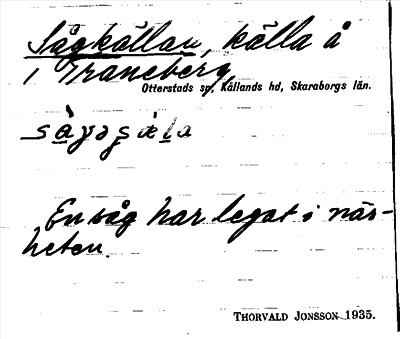 Sågkällan, källa å
i Traneberg
Otterstads sn, Kållands hd, Skaraborgs län.
En såg har legat i när-
heten.
THORVALD JONSSON 1935.